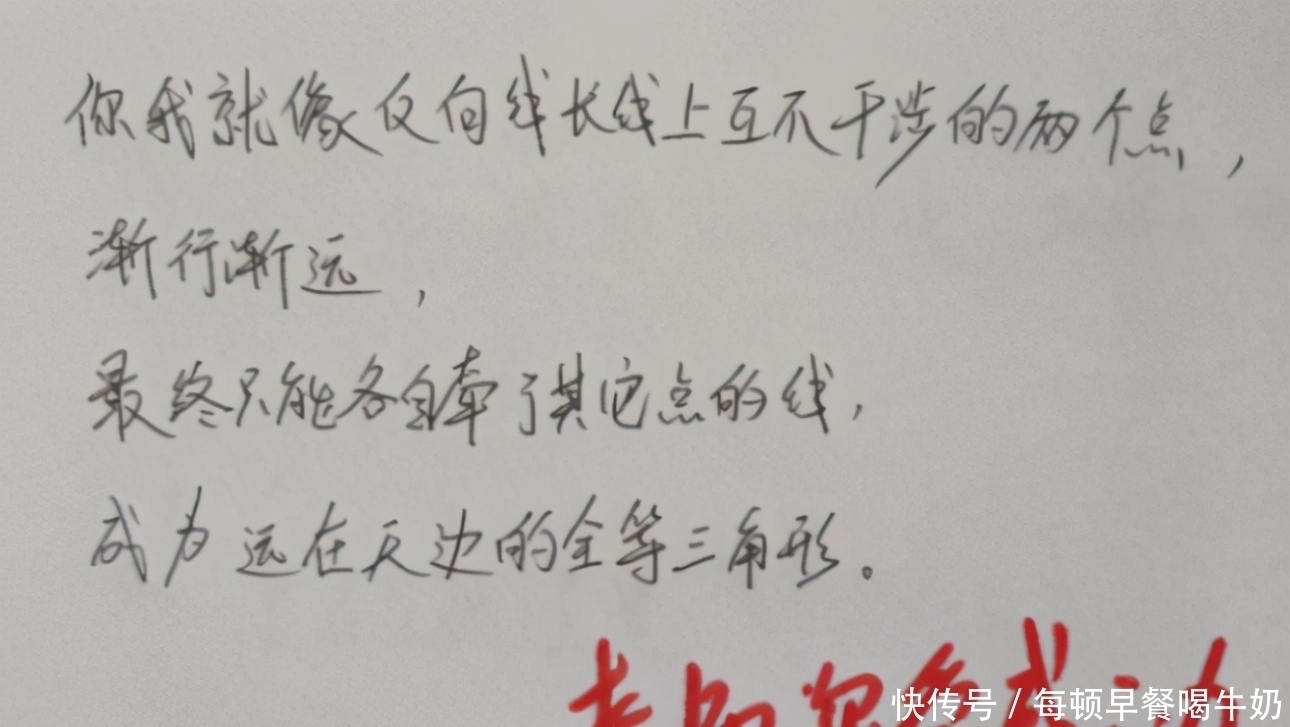 你我就像反向延长线上互不干涉的两个点，
渐行渐远，
最终只能各自牵了其它点的线，
成为远在天边的全等三角形。
快传号 / 每顿早餐喝牛奶